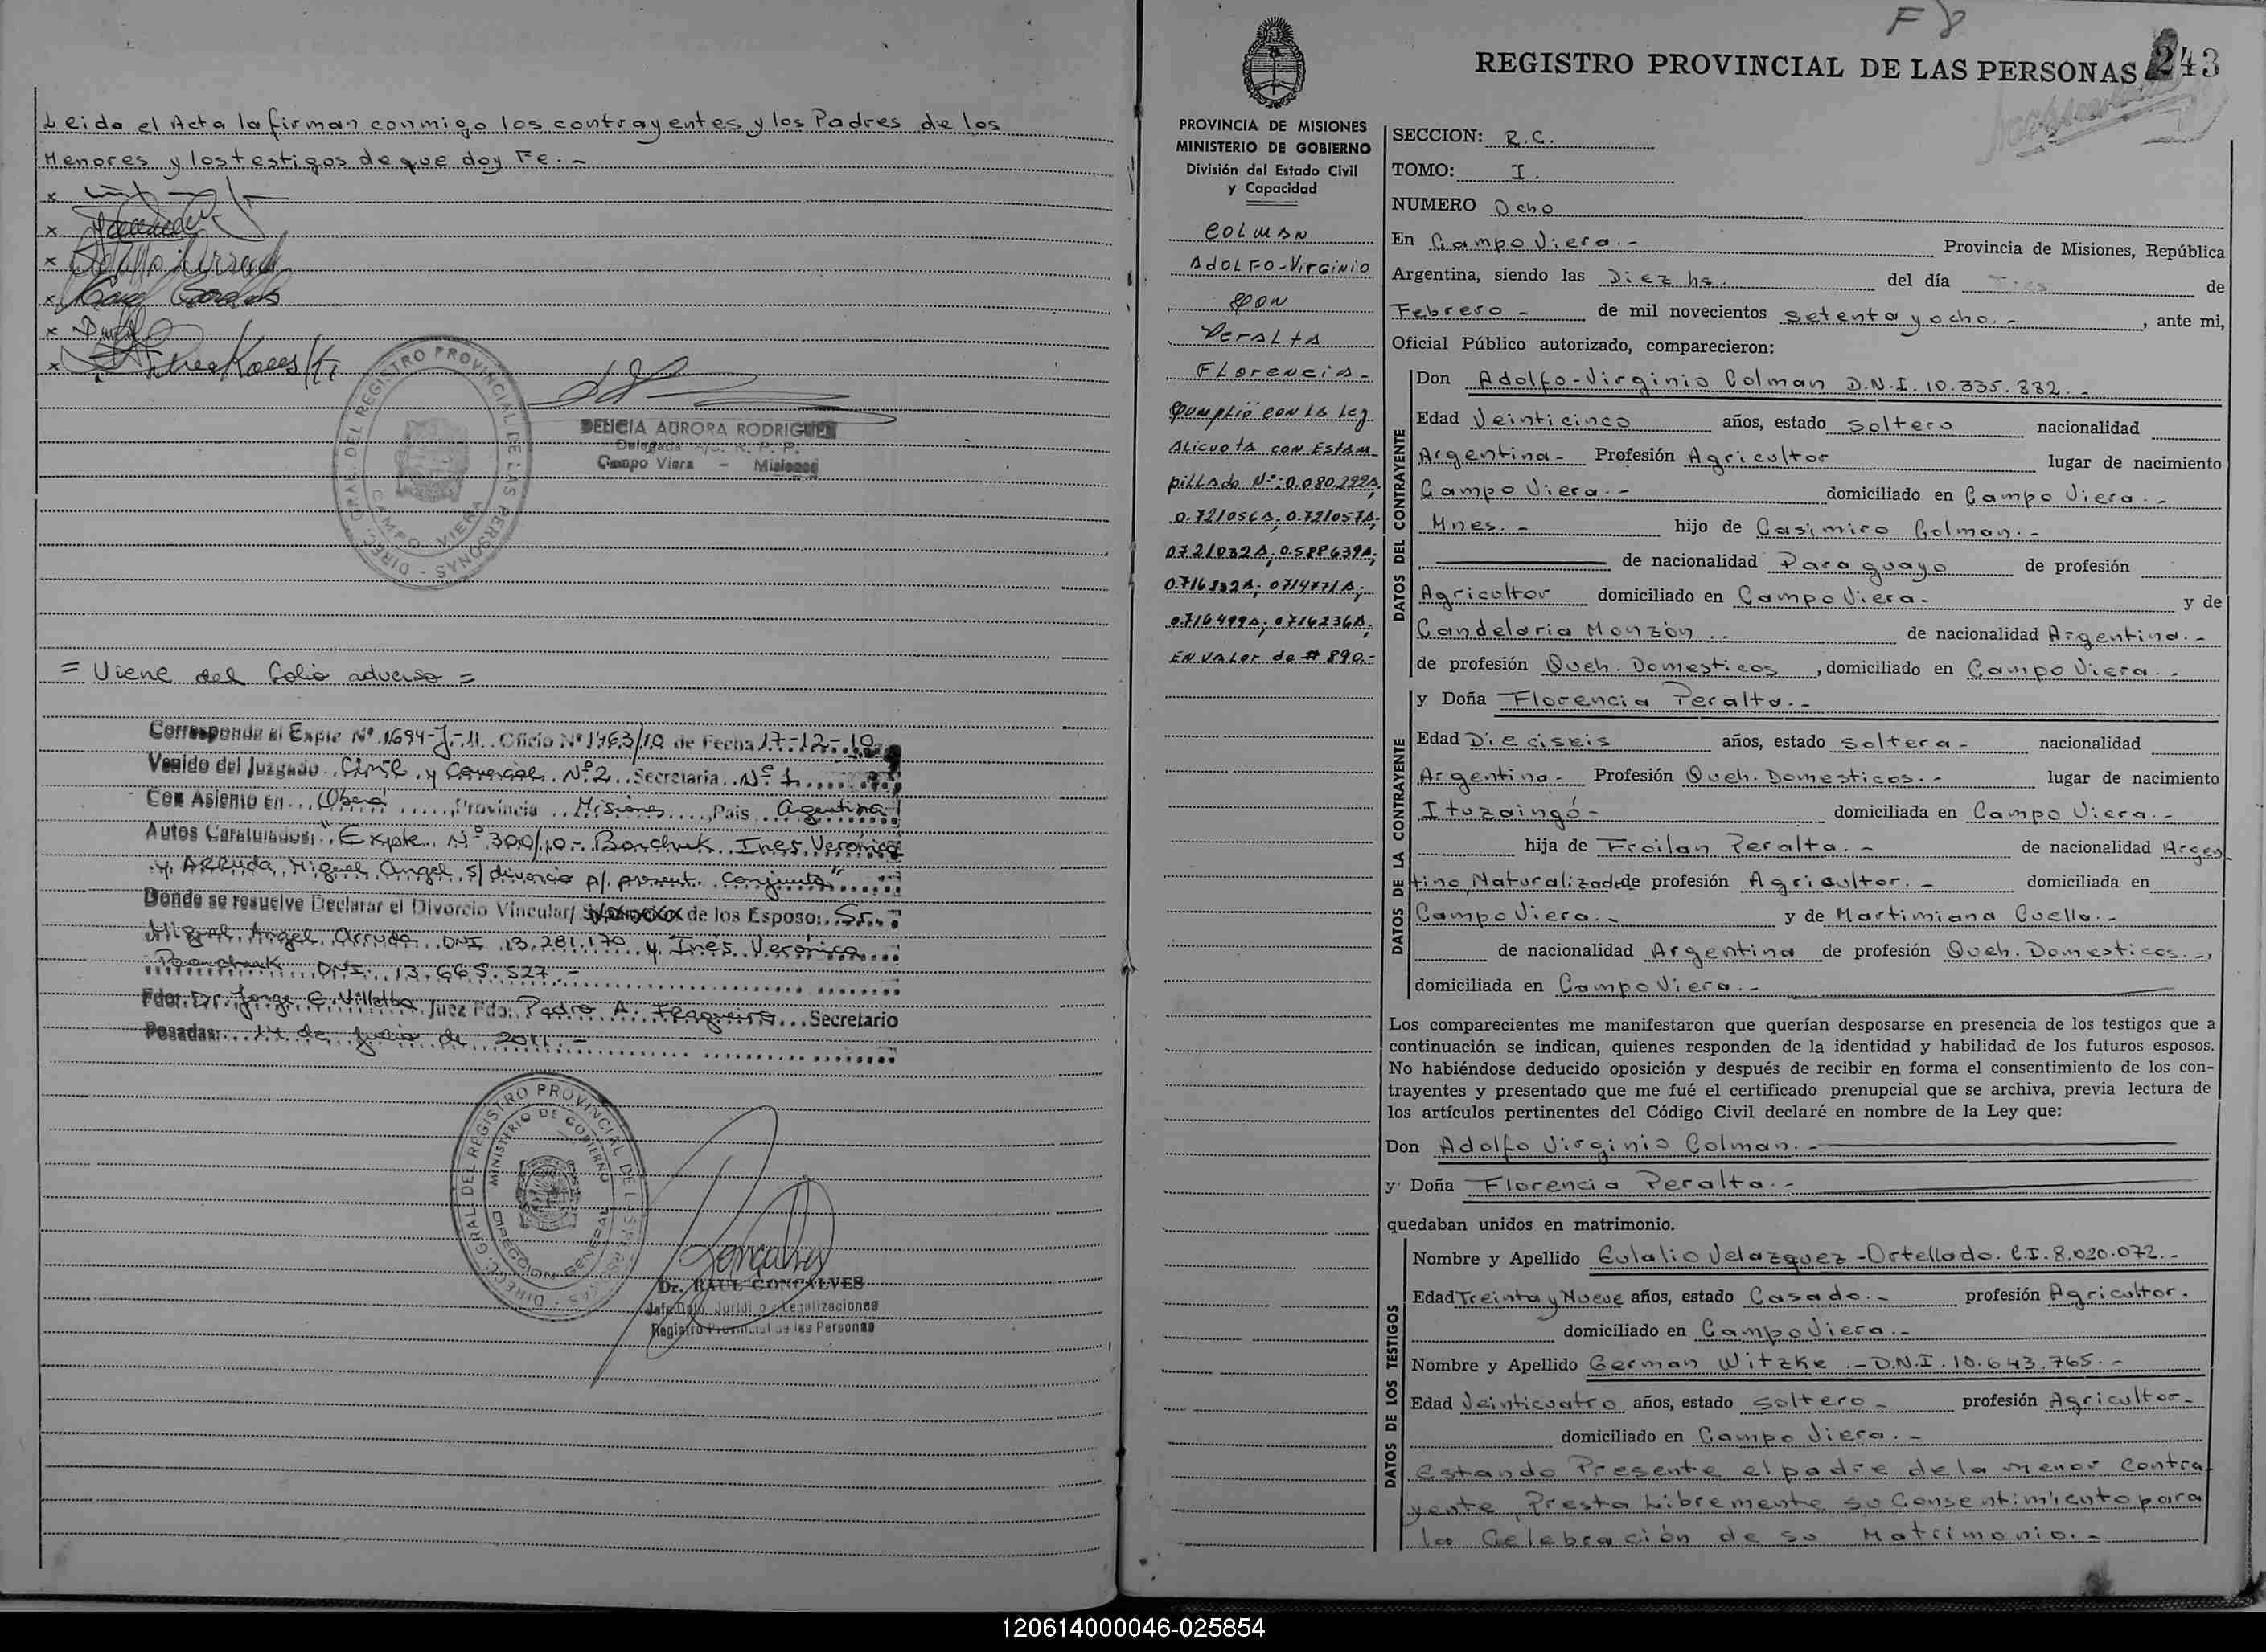 Leida el Acta la firman conmigo los contrayentes y los Padres de los
Menores y los testigos de que doy Fe.-
x
x
x
x
x
x
DIREC. GRAL. DEL REGISTRO PROVINCIAL DE LAS PERSONAS
CAMPO VIERA
DELICIA AURORA RODRIGUEZ
Delegada R. P. P.
Campo Viera - Misiones
= Viene del folio adverso =
Corresponde al Expte Nº 1694-J-11. Oficio Nº 1463/10 de Fecha 17-12-10
Venido del Juzgado Civil y Comercial Nº 2 Secretaria Nº 1
Con Asiento en Oberá, Provincia Misiones, Pais Argentina
Autos Caratulados: "Expte. Nº 300/10 - Bonchuk Ines Verónica
y Arruda, Miguel Angel s/ divorcio p/. present. Conjunta"
Donde se resuelve Declarar el Divorcio Vincular/ de los Esposo: Sr.
Miguel Angel Arruda DNI 13.281.170 y Inés Verónica
Bonchuk DNI. 13.665.527.-
Fdo: Dr. Jorge E. Villalba Juez Fdo: Pedro A. Secretario
Posadas: 14 de Julio de 2011.-
DIRECC. GRAL. DEL REGISTRO PROVINCIAL DE LAS PERSONAS
MINISTERIO DE GOBIERNO
DIRECCION GENERAL
Dr. RAUL GONCALVES
Jefe Dpto. Juridico y Legalizaciones
Registro Provincial de las Personas
F 8
REGISTRO PROVINCIAL DE LAS PERSONAS 243
PROVINCIA DE MISIONES
MINISTERIO DE GOBIERNO
División del Estado Civil
y Capacidad
COLMAN
ADOLFO-VIRGINIO
CON
PERALTA
FLORENCIA-
Cumplió con la ley
Alicuota con Estam-
pillado Nº: 0.080.222A,
0.721056A; 0.721057A;
0721032A; 0.588639A;
0.716832A; 0714771A;
0.716499A; 0716236A;
EN VALOR de # 890.-
SECCION: R.C.
TOMO: I.
NUMERO Ocho
En Campo Viera.- Provincia de Misiones, República
Argentina, siendo las Diez hs. del día Tres de
Febrero - de mil novecientos setenta y ocho.-, ante mi,
Oficial Público autorizado, comparecieron:
DATOS DEL CONTRAYENTE
Don Adolfo-Virginio Colman D.N.I. 10.335.832.-
Edad Veinticinco años, estado soltero nacionalidad
Argentina- Profesión Agricultor lugar de nacimiento
Campo Viera.- domiciliado en Campo Viera.-
Mnes.- hijo de Casimiro Colman.-
de nacionalidad Paraguayo de profesión
Agricultor domiciliado en Campo Viera- y de
Candelaria Monzón.. de nacionalidad Argentina.-
de profesión Queh. Domesticos, domiciliado en Campo Viera.-
DATOS DE LA CONTRAYENTE
y Doña Florencia Peralta.-
Edad Dieciseis años, estado soltera- nacionalidad
Argentina- Profesión Queh. Domesticos.- lugar de nacimiento
Ituzaingó- domiciliada en Campo Viera.-
hija de Froilan Peralta.- de nacionalidad Argen
tino Naturalizado de profesión Agricultor.- domiciliada en
Campo Viera.- y de Martimiana Cuello.-
de nacionalidad Argentina de profesión Queh. Domesticos.-,
domiciliada en Campo Viera.-
Los comparecientes me manifestaron que querían desposarse en presencia de los testigos que a
continuación se indican, quienes responden de la identidad y habilidad de los futuros esposos.
No habiéndose deducido oposición y después de recibir en forma el consentimiento de los con-
trayentes y presentado que me fué el certificado prenupcial que se archiva, previa lectura de
los artículos pertinentes del Código Civil declaré en nombre de la Ley que:
Don Adolfo Virginio Colman.-
y Doña Florencia Peralta.-
quedaban unidos en matrimonio.
DATOS DE LOS TESTIGOS
Nombre y Apellido Eulalio Velazquez-Ortellado. C.I. 8.020.072.-
Edad Treinta y Nueve años, estado Casado.- profesión Agricultor.
domiciliado en Campo Viera.-
Nombre y Apellido German Witzke.- D.N.I. 10.643.765.-
Edad Veinticuatro años, estado soltero- profesión Agricultor-
domiciliado en Campo Viera.-
estando Presente el padre de la menor contra
yente, Presta Libremente su Consentimiento para
la Celebración de su Matrimonio.-
120614000046-025854